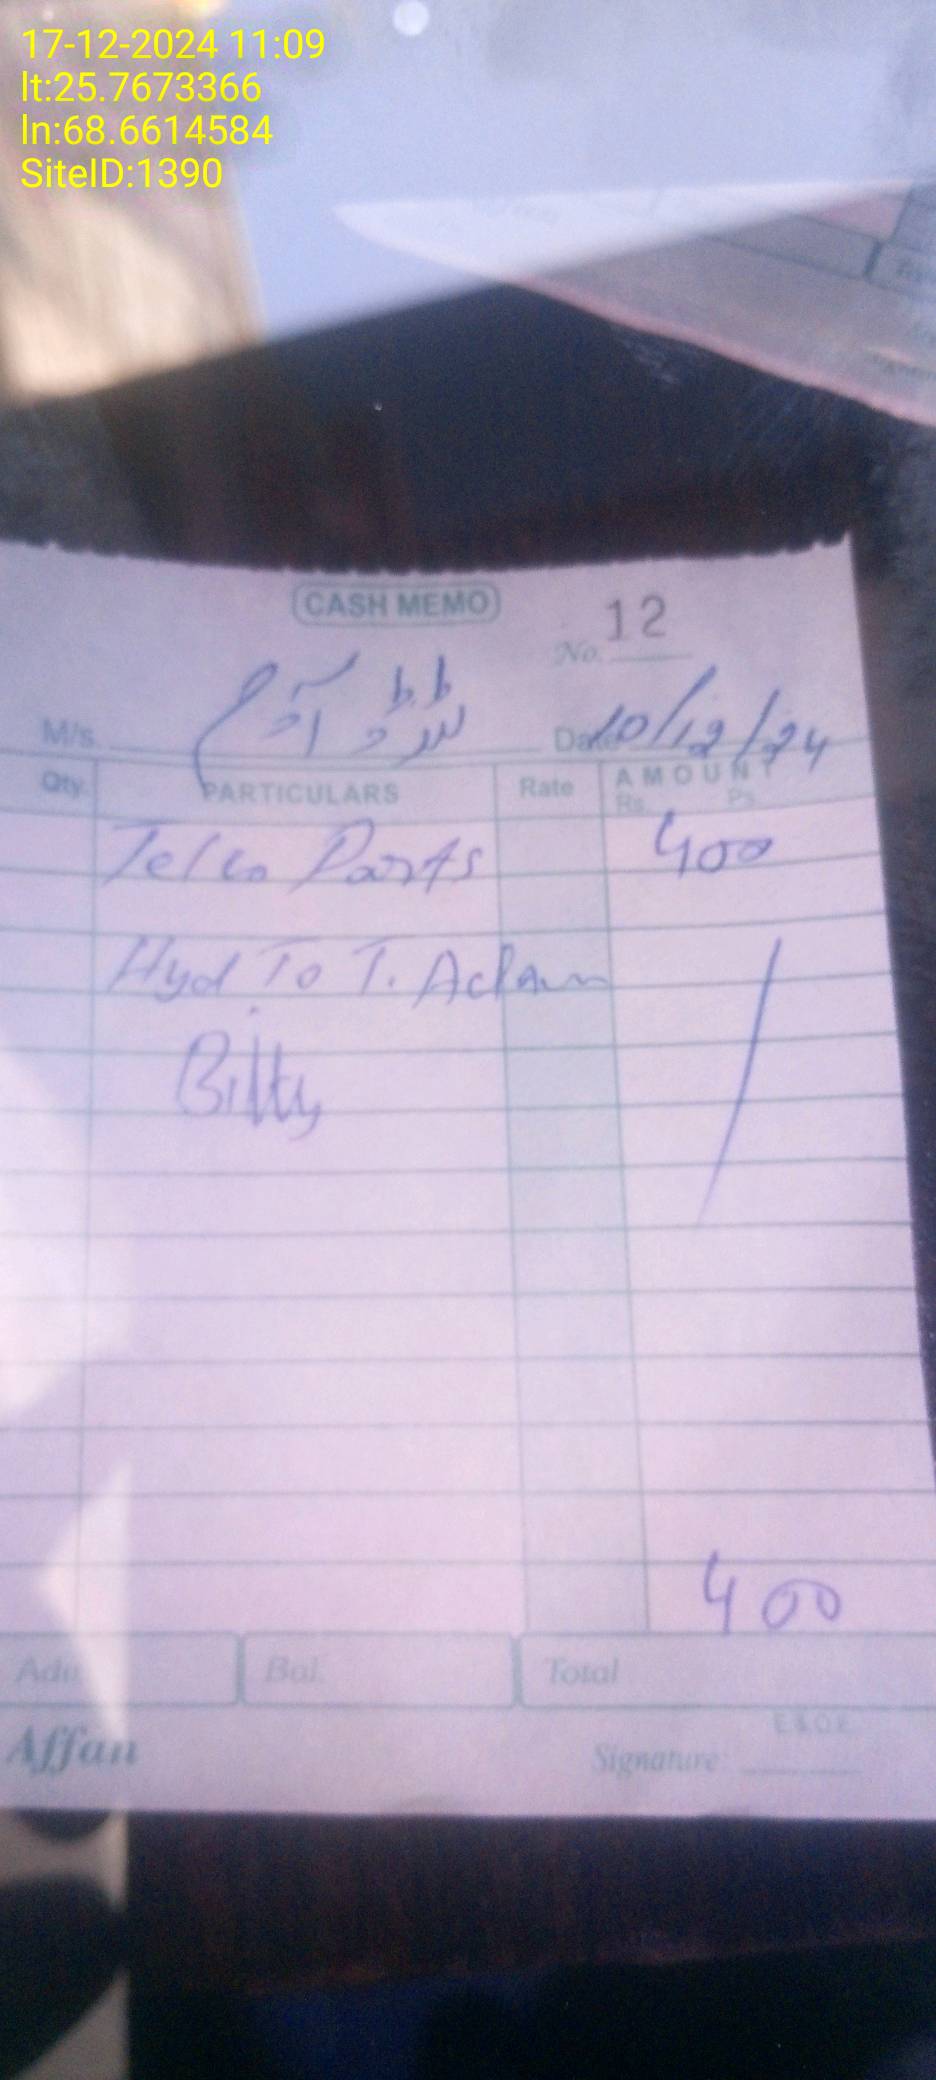 17-12-2024 11:09
lt:25.7673366
ln:68.6614584
SiteID:1390
CASH MEMO
No. 12
M/s. Date 10/12/24
Qty. PARTICULARS Rate AMOUNT
Rs. Ps.
Telco Parts 400
Hyd To T. Adam
Bilty
400
Adv. Bal. Total
E&OE
Affan Signature